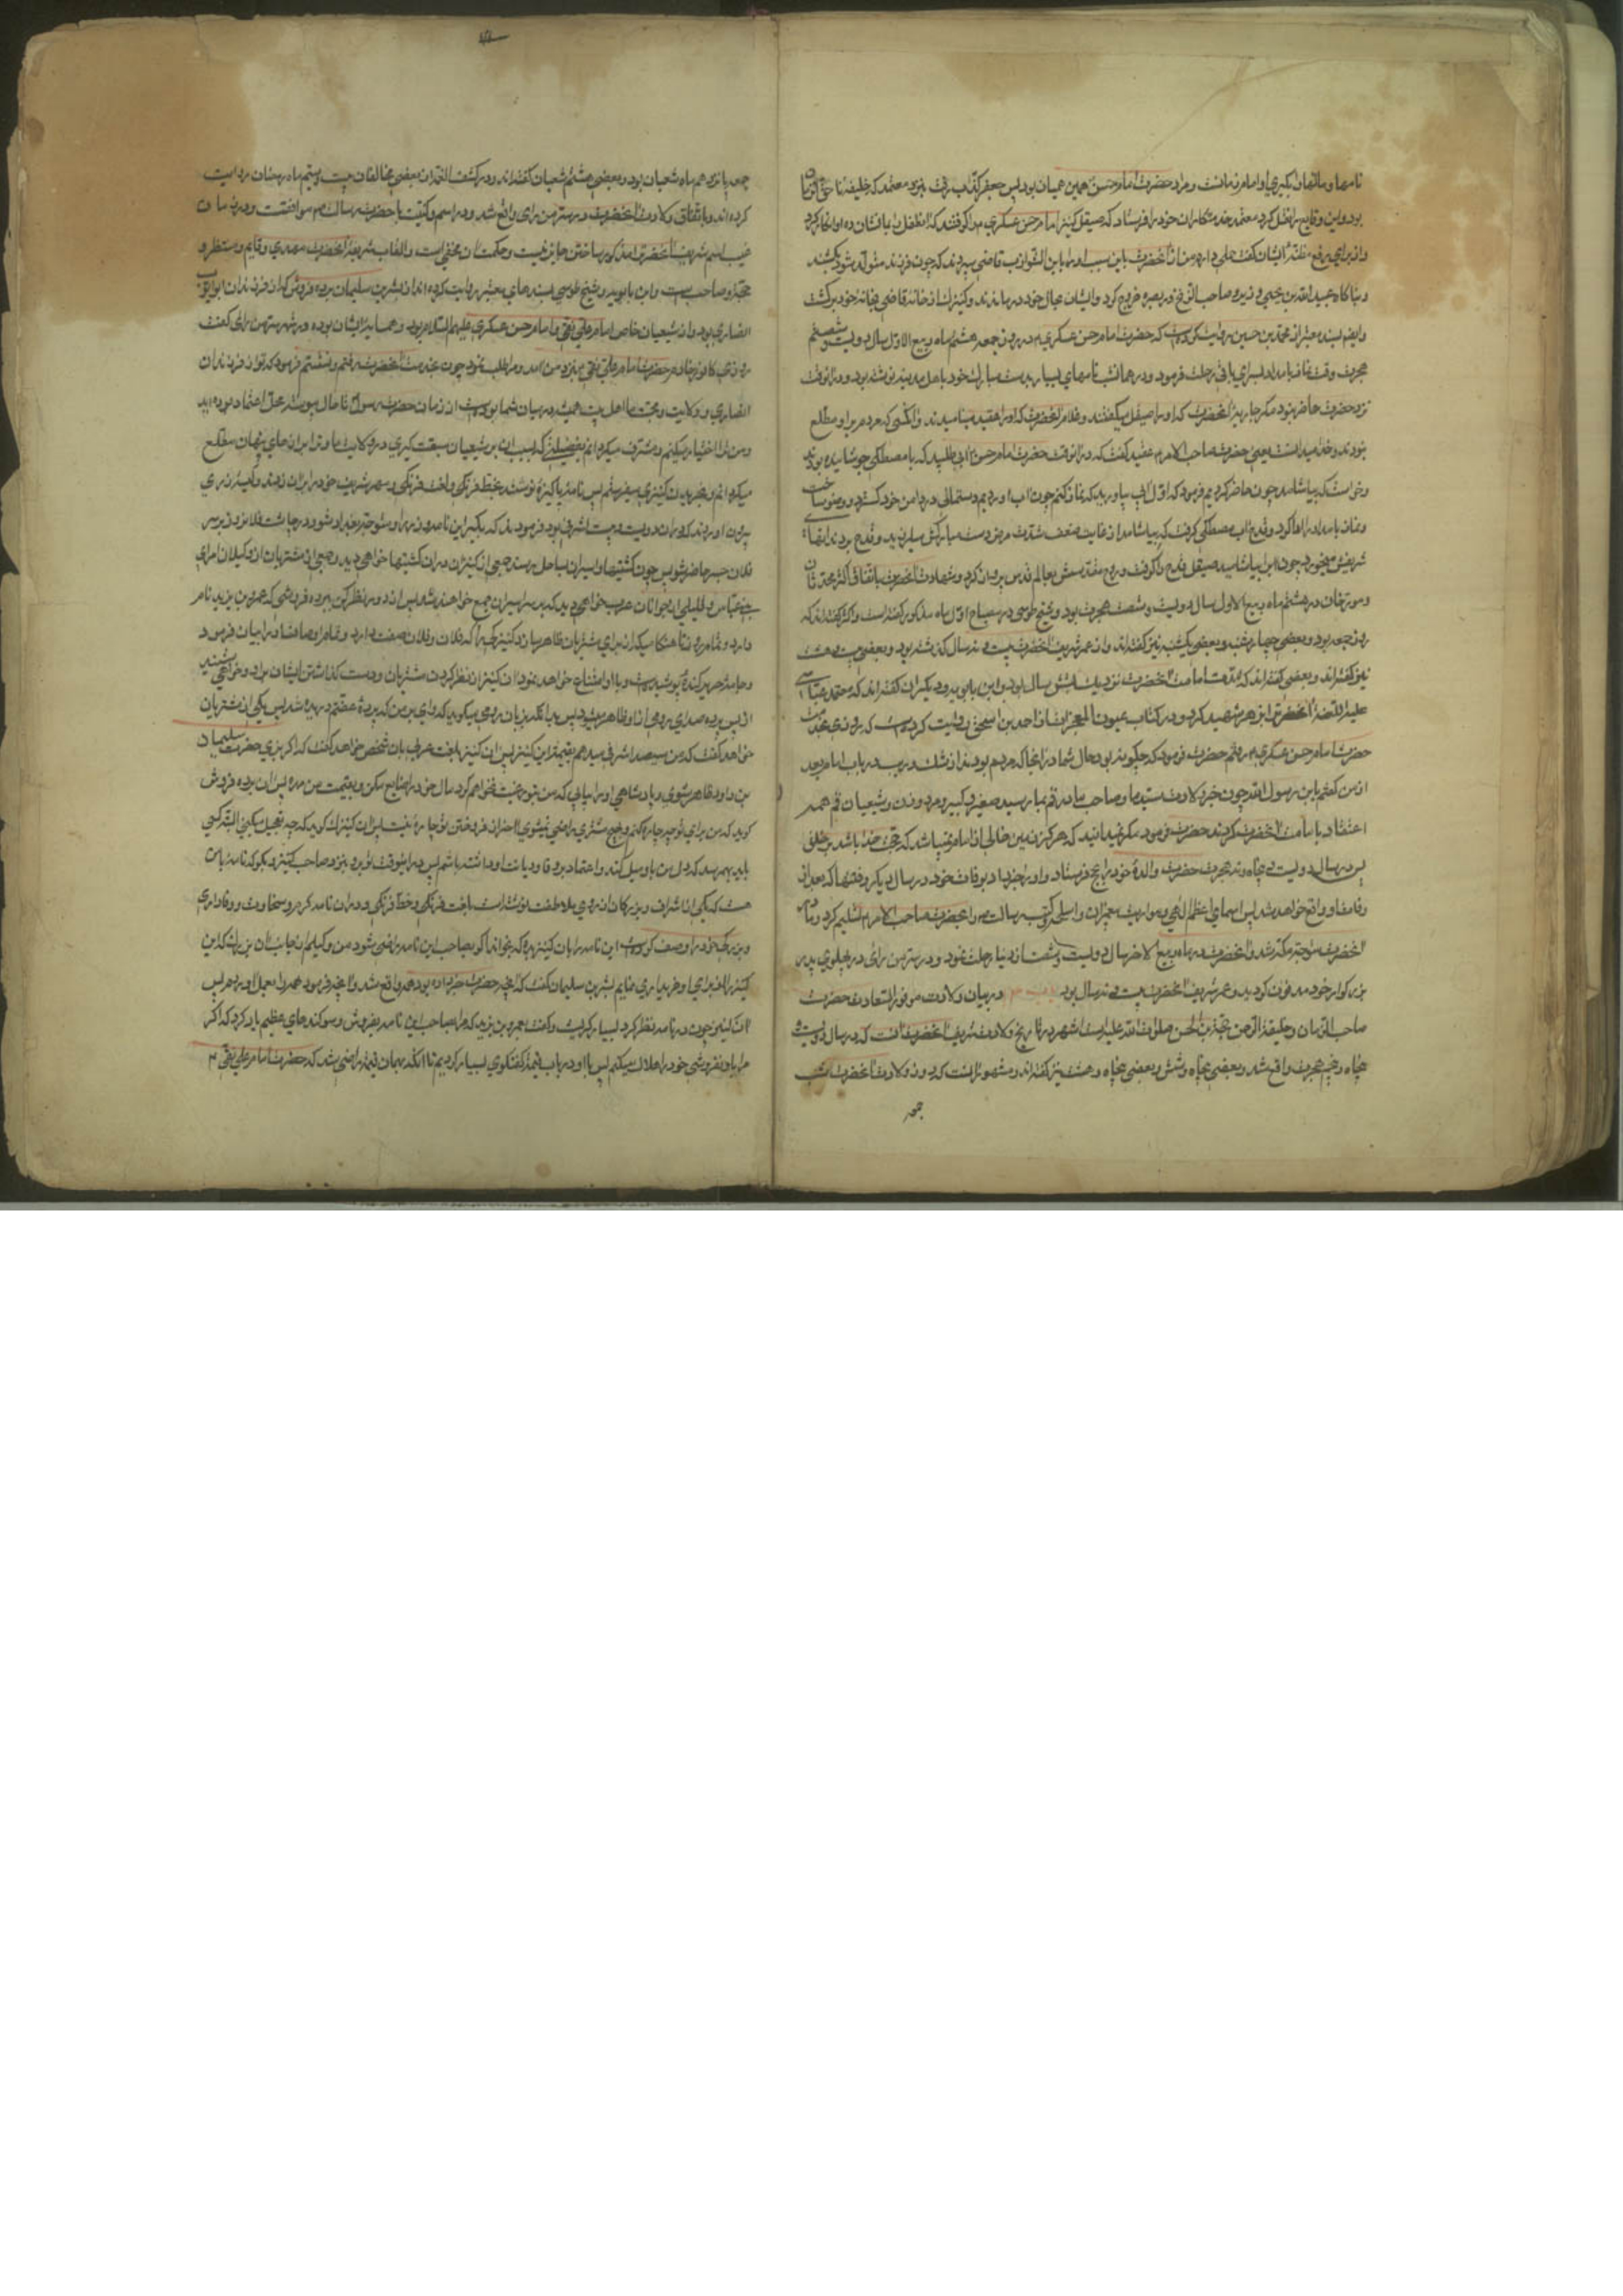 نامها و مالها را بگیری او امام زمانست و مراد حضرت امام حسن همین همیان بود پس جعفر کذاب رفت بنزد معتمد که خلیفه بنا حق آن زمان
بود و این وقایع را نقل کرد معتمد خدمتکاران خود را فرستاد که صیقل کنیز امام حسن عسکری را گرفتند که آن طفل را بما نشان ده او انکار کرد
و از برای رفع مظنه ایشان گفت حملی دارم من از آنحضرت باین سبب او را بابن الشوارب قاضی سپردند که چون فرزند متولد شود بکشند
و بناگاه عبید الله بن یحیی وزیر مرد و صاحب الزنج در بصره خروج کرد و ایشان بحال خود درماندند و کنیزک از خانه قاضی بخانه خود برگشت
و ایضا بسند معتبر از محمد بن حسین روایت کرده است که حضرت امام حسن عسکری در روز جمعه هشتم ماه ربیع الاول سال دویست و شصتم
هجرت وقت نماز بامداد بسرای باقی رحلت فرمود و در همان شب نامهای بسیار بدست مبارک خود باهل مدینه نوشته بود و در آنوقت
نزد حضرت حاضر نبود مگر جاریه آنحضرت که او را صیقل میگفتند و غلام آنحضرت که او را عقید مینامیدند و آنکسی که مردم بر او مطلع
نبودند و خدا میدانست یعنی حضرت صاحب الامر عقید گفت که در آنوقت حضرت امام حسن آبی طلبید که با مصطکی جوشانیده بودند
و خواست که بیاشامد چون حاضر کردیم فرمود که اول آب بیاورید که نماز کنم چون آب آوردیم دستمالی در دامن خود گسترد و وضو ساخت
و نماز بامداد را ادا کرد و قدح آب مصطکی گرفت که بیاشامد از غایت ضعف و شدت مرض دست مبارکش میلرزید و قدح بر دندانهای
شریفش میخورد چون آب را بیاشامید و صیقل قدح را گرفت روح مقدسش بعالم قدس پرواز کرد و شهادت آنحضرت باتفاق اکثر محدثان
و مورخان در هشتم ماه ربیع الاول سال دویست و شصت هجرت بود و شیخ طوسی در مصباح اول ماه مذکور گفته است و اکثر گفته‌اند که
روز جمعه بود و بعضی چهارشنبه و بعضی یکشنبه نیز گفته‌اند و از عمر شریف آنحضرت بیست و نه سال گذشته بود و بعضی بیست و هشت
نیز گفته‌اند و بعضی گفته‌اند که مدت امامت آنحضرت نزدیک بشش سال بود و ابن بابویه و دیگران گفته‌اند که معتمد عباسی
علیه اللعنه آنحضرت را بزهر شهید کرد و در کتاب عیون المعجزات از احمد بن اسحق روایت کرده است که روزی بخدمت
حضرت امام حسن عسکری رفتم حضرت فرمود که چگونه بود حال شما در آنچه که مردم بودند از شک و ریب در باب امام بعد
از من گفتم یابن رسول الله چون خبر ولادت سید ما و صاحب ما در قم بما رسید صغیر و کبیر و مرد و زن و شیعیان قم همه
اعتقاد بامامت آنحضرت کردند حضرت فرمود مگر نمیدانید که هرگز زمین خالی از امام نمیباشد که حجت خدا باشد بر خلق
پس در سال دویست و پنجاه و نه هجرت حضرت والده خود را بحج فرستاد و او را خبر داد بوفات خود در سال دیگر و فتنها که بعد از
وفات او واقع خواهد شد پس اسمای اعظم الهی و مواریث پیغمبران و اسلحه و کتب رسالت را بحضرت صاحب الامر تسلیم کرد و مادر
آنحضرت متوجه مکه شد و آنحضرت در ماه ربیع الاخر سال دویست و شصت از دنیا رحلت نمود و در سر من رای در پهلوی پدر
بزرگوار خود مدفون گردید و عمر شریف آنحضرت بیست و نه سال بود در بیان ولادت موفور السعادت حضرت
صاحب الزمان و خلیفة الرحمن حجة بن الحسن صلوات الله علیه است اشهر در تاریخ ولادت شریف آنحضرت آنست که در سال دویست و
پنجاه و پنج هجرت واقع شد و بعضی پنجاه و شش و بعضی پنجاه و هشت نیز گفته‌اند و مشهور آنست که روز ولادت آنحضرت شب
جمعه
جمعه پانزدهم ماه شعبان بود و بعضی هشتم شعبان گفته‌اند و در کشف الغمه از بعضی مخالفان بیست و سیم ماه رمضان روایت
کرده‌اند و باتفاق ولادت آنحضرت در سر من رای واقع شد و در اسم و کنیت با حضرت رسالت موافقت و در زمان
غیبت اسم شریف آنحضرت را مذکور ساختن جایز نیست و حکمت آن مخفی است و القاب شریفه آنحضرت مهدی و قایم و منتظر و
حجة و صاحب است و ابن بابویه و شیخ طوسی بسندهای معتبر روایت کرده‌اند از بشر بن سلیمان برده فروش که از فرزندان ابو ایوب
انصاری بود و از شیعیان خاص امام علی نقی و امام حسن عسکری علیهم السلام بود و همسایه ایشان بوده در شهر سر من رای گفت
روزی کافور خادم حضرت امام علی نقی بنزد من آمد و مرا طلب نمود چون بخدمت آنحضرت رفتم و نشستم فرمود که تو از فرزندان
انصاری و ولایت و محبت ما اهل بیت همیشه در میان شما بوده است از زمان حضرت رسول تا حال پیوسته محل اعتماد بوده‌اید
و من ترا اختیار میکنم و مشرف میکردانم بفضیلتی که بسبب آن بر شیعیان سبقت گیری در ولایت ما و ترا بر رازهای پنهان مطلع
میکردانم و بخریدن کنیزی میفرستم پس نامه پاکیزه نوشتند بخط فرنگی و لغت فرنگی و مهر شریف خود بر آن زدند و کیسه زری
بیرون آوردند که در آن دویست و بیست اشرفی بود فرمودند که بگیر این نامه و زر را و متوجه بغداد شو و در چاشت فلان روز بر سر
فلان جسر حاضر شو پس چون کشتیهای اسیران بساحل رسد جمعی از کنیزان در آن کشتیها خواهی دید و جمعی از مشتریان از وکیلان امرای
بنی عباس و قلیلی از جوانان عرب خواهی دید که بر سر اسیران جمع خواهند شد پس از دور نظر کن ببرده فروشی که عمرو بن یزید نام
دارد و تمام روز تا هنگامیکه از برای مشتریان ظاهر سازد کنیزکی را که فلان و فلان صفت دارد و تمام اوصاف او را بیان فرمود
و جامه حریر کنده پوشیده است و ابا و امتناع خواهد نمود آن کنیز از نظر کردن مشتریان و دست گذاشتن ایشان بر او و خواهی شنید
از پس پرده صدای رومی از او ظاهر میشود پس بدانکه بزبان رومی میگوید که وای بر من که پرده عفتم دریده شد پس یکی از مشتریان
خواهد گفت که من سیصد اشرفی میدهم بقیمت این کنیز پس آن کنیز بلغت عربی بآن شخص خواهد گفت که اگر بزی حضرت سلیمان
بن داود ظاهر شوی و پادشاهی او را بیابی که من بتو رغبت نخواهم کرد مال خود را ضایع مکن و بقیمت من مده پس آن برده فروش
گوید که من برای تو چه چاره کنم و بهیچ مشتری راضی نمیشوی آخر از فروختن تو چاره نیست پس آن کنیزک گوید که چه تعجیل میکنی البته کسی
باید بهم رسد که دل من باو میل کند و اعتماد بر وفا و دیانت او داشته باشم پس در اینوقت تو برو بنزد صاحب کنیز و بگو که نامه با من
هست که یکی از اشراف و بزرگان از روی ملاطفت نوشته است بلغت فرنگی و خط فرنگی و در آن نامه کرم و سخاوت و وفاداری
و بزرگی خود را وصف کرده است این نامه را بآن کنیز بده که بخواند اگر بصاحب این نامه راضی شود من وکیلم از جانب آن بزرگ که این
کنیز را از برای او خریداری نمایم بشر بن سلیمان گفت که آنچه حضرت خبر داده بود همه واقع شد و آنچه فرمود همه را بعمل آوردم پس
آن کنیز چون در نامه نظر کرد بسیار گریست و گفت بعمرو بن یزید که مرا بصاحب این نامه بفروش و سوگندهای عظیم یاد کرد که اگر
مرا باو نفروشی خود را هلاک میکنم پس با او در باب قیمت گفتگوی بسیار کردیم تا آنکه بهمان قیمت راضی شد که حضرت امام علی نقی